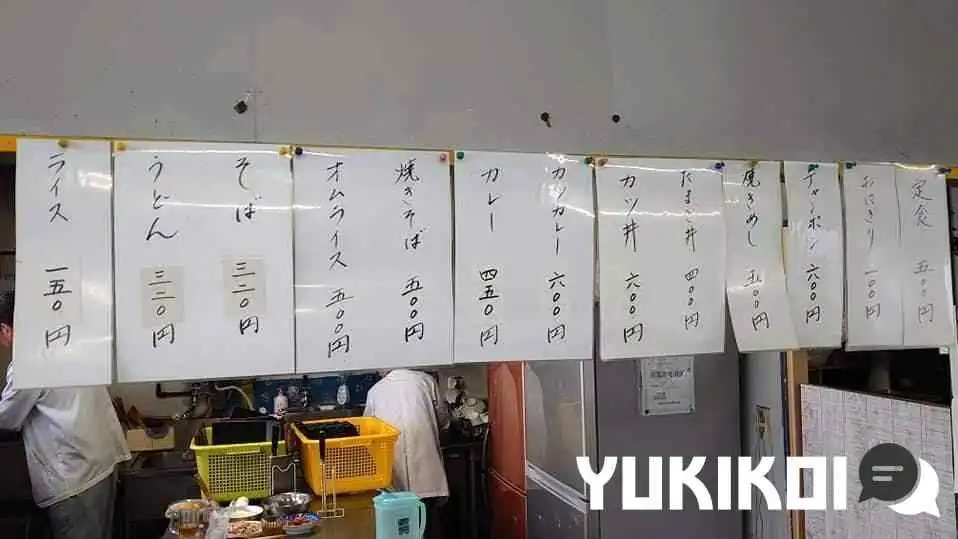 定食 五〇〇円
おにぎり 一〇〇円
チャンポン 六〇〇円
焼きめし 五〇〇円
たまご丼 四〇〇円
カツ丼 六〇〇円
カツカレー 六〇〇円
カレー 四五〇円
焼きそば 五〇〇円
オムライス 五〇〇円
そば 三二〇円
うどん 三二〇円
ライス 一五〇円
YUKIKOI